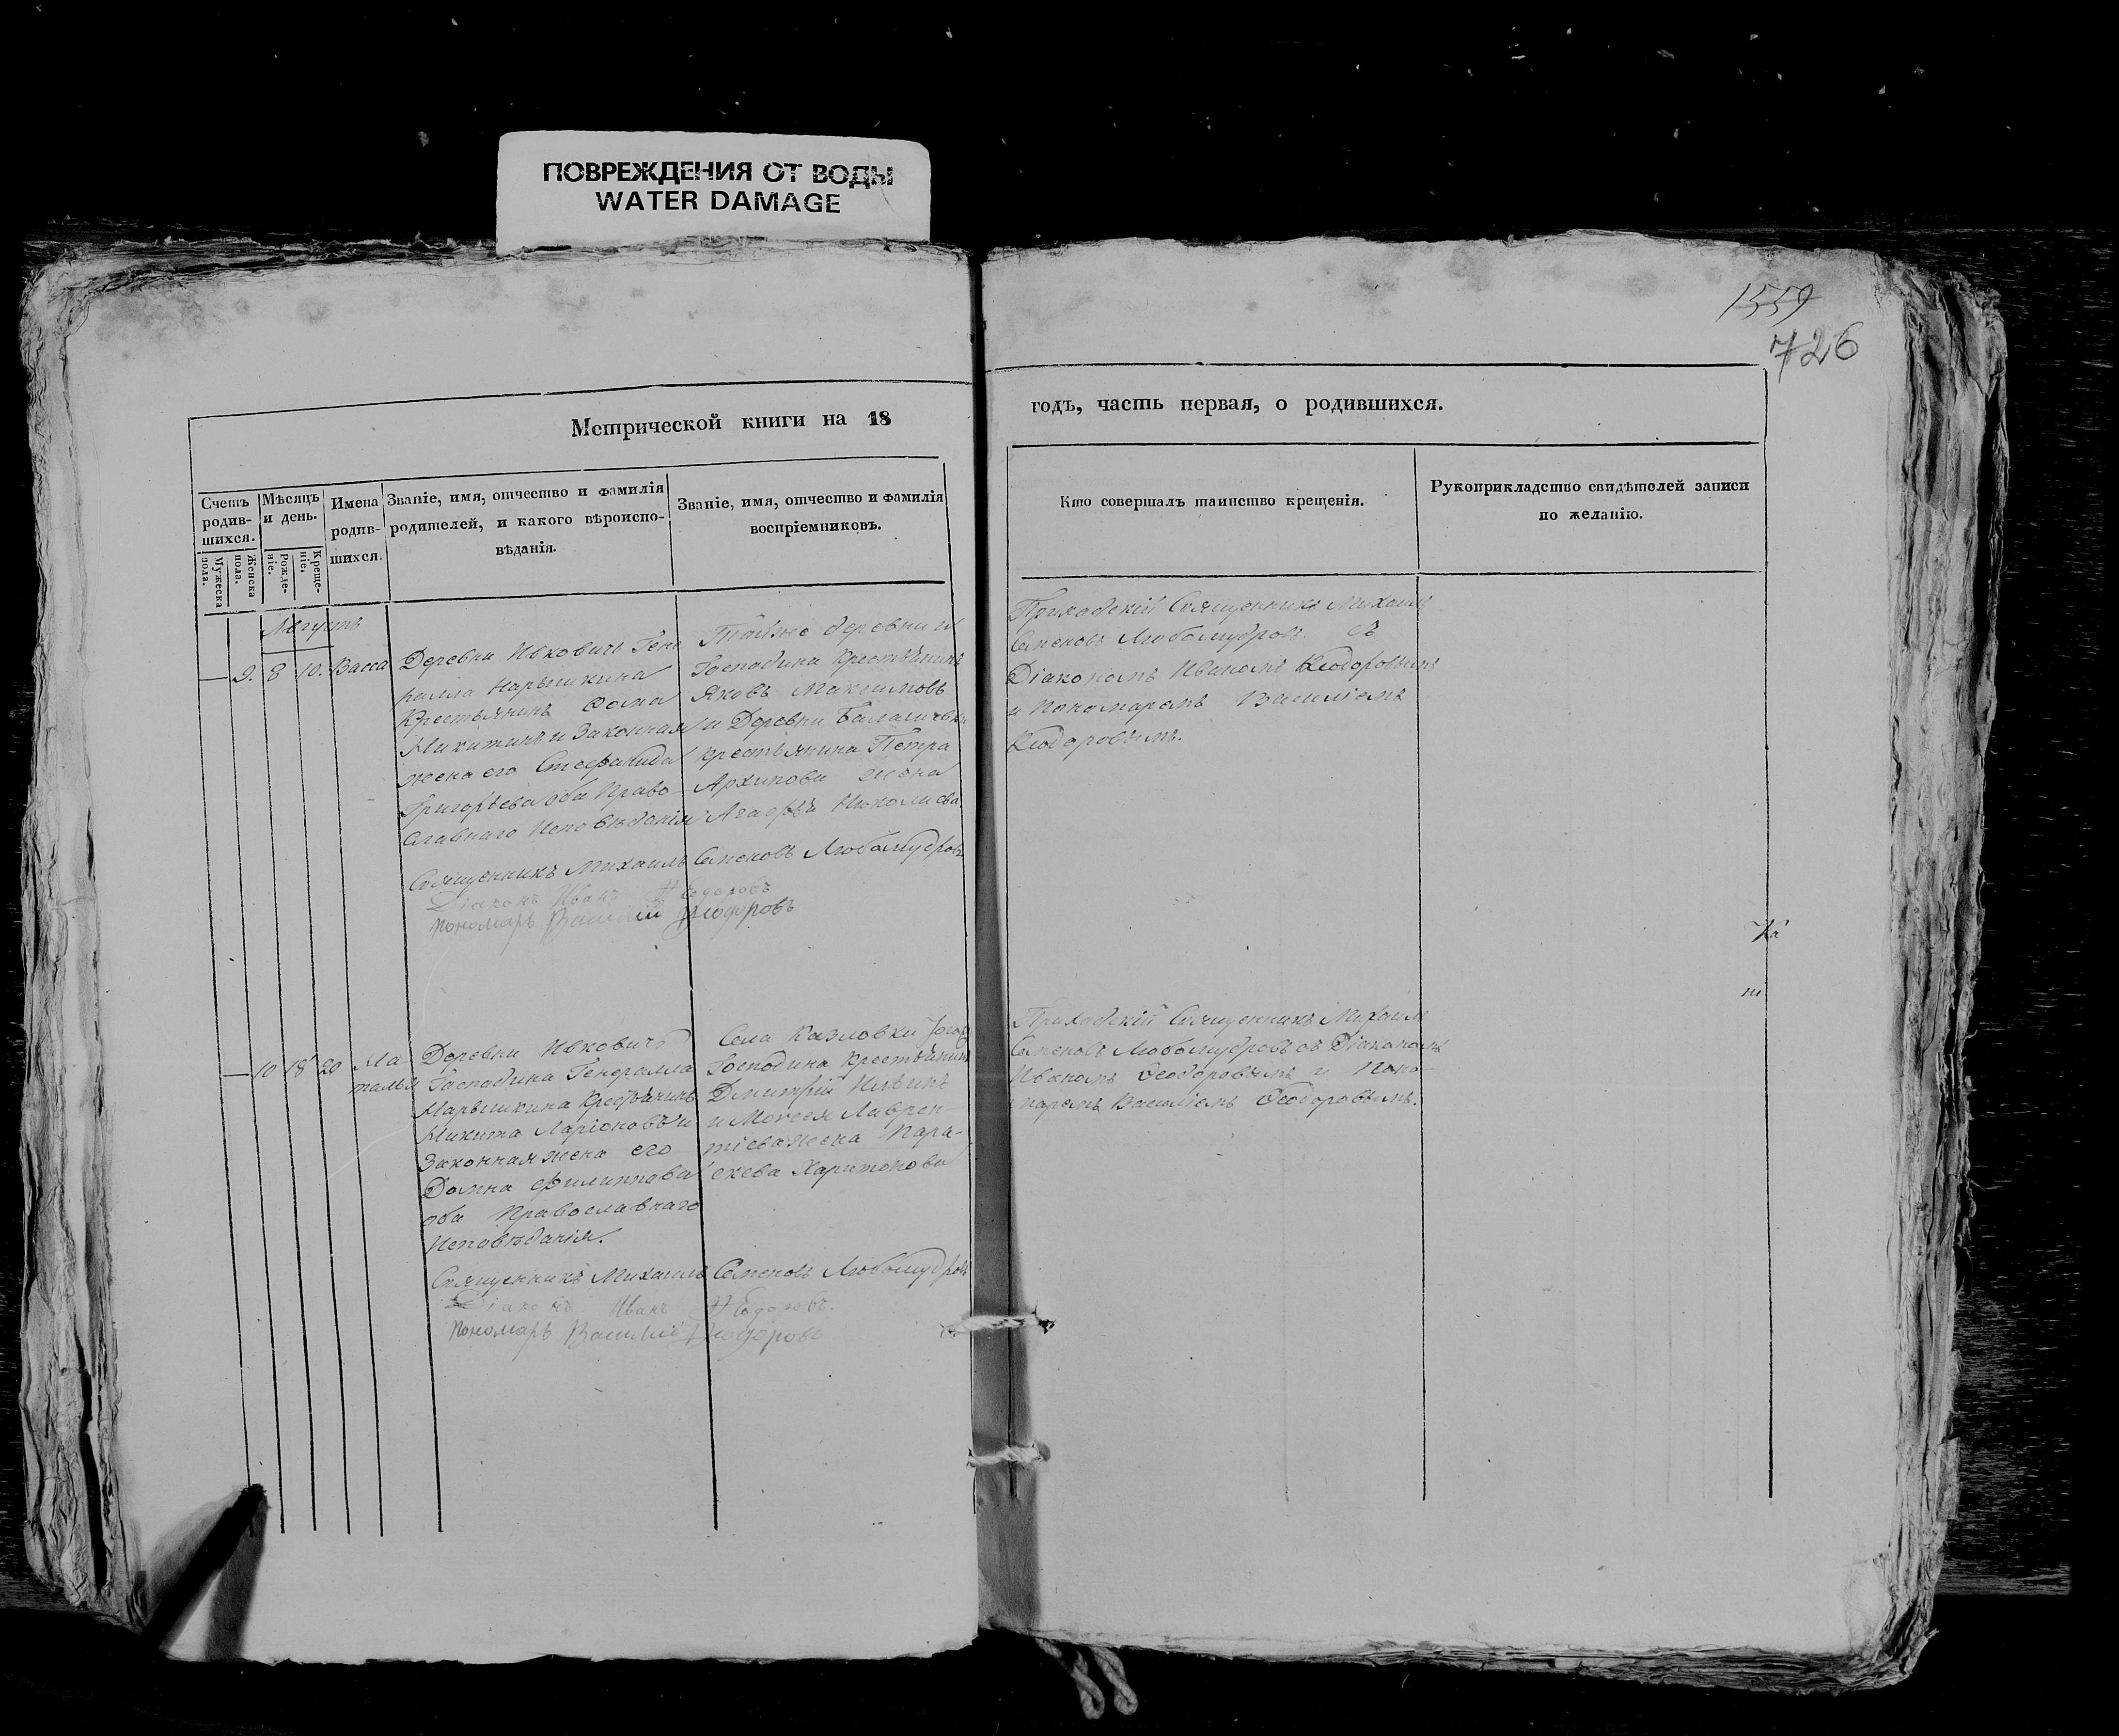 ПОВРЕЖДЕНИЯ ОТ ВОДЫ
WATER DAMAGE
1559
726
Метрической книги на 18
годъ, часть первая, о родившихся.
Счетъ родив-шихся.
Мужеска пола.
Женска пола.
Мѣсяцъ и день.
Рожде-ніе.
Креще-ніе.
Имена родив-шихся.
Званіе, имя, отчество и фамилія
родителей, и какого вѣроиспо-
вѣданія.
Званіе, имя, отчество и фамилія
воспріемниковъ.
Кто совершалъ таинство крещенія.
Рукоприкладство свидѣтелей записи
по желанію.
Августъ
9. 8 10. Васса
Деревни Ивковичь Гене
ралла Нарышкина
Крестьянинъ Фома
Микитинъ и Законная
жена его Стефанида
Григорьева оба Право
славнаго Исповѣданія
Тойже деревни и
Господина Крестьянинъ
Яковъ Максимовъ
и Деревни
крестьянина Петра
Архипова жена
Агафья Николаева
Священникъ Михаилъ Семеновъ Любомудровъ
Діаконъ Иванъ Ѳедоровъ
Пономарь Василій Ѳеодоровъ
Приходскій Священникъ Михаилъ
Семеновъ Любомудровъ съ
Діакономъ Иваномъ Ѳеодоровымъ
и Пономаремъ Василіемъ
Ѳеодоровымъ.
10 18 20 На-
талья
Деревни Ивковичь
Господина Генералла
Нарышкина Крестьянинъ
Микита Ларіоновъ и
Законная жена его
Домна Филиппова
оба Православнаго
Исповѣданія.
Села Казловки
Господина Крестьянинъ
Дмитрій
и Моисея Лаврен-
тіева жена Пара-
скева Харитонова
Священникъ Михаилъ Семеновъ Любомудровъ
Діаконъ Иванъ Ѳедоровъ.
Пономарь Василій Ѳеодоровъ
Приходскій Священникъ Михаилъ
Семеновъ Любомудровъ съ Діакономъ
Иваномъ Ѳеодоровымъ и Поно-
маремъ Василіемъ Ѳеодоровымъ.